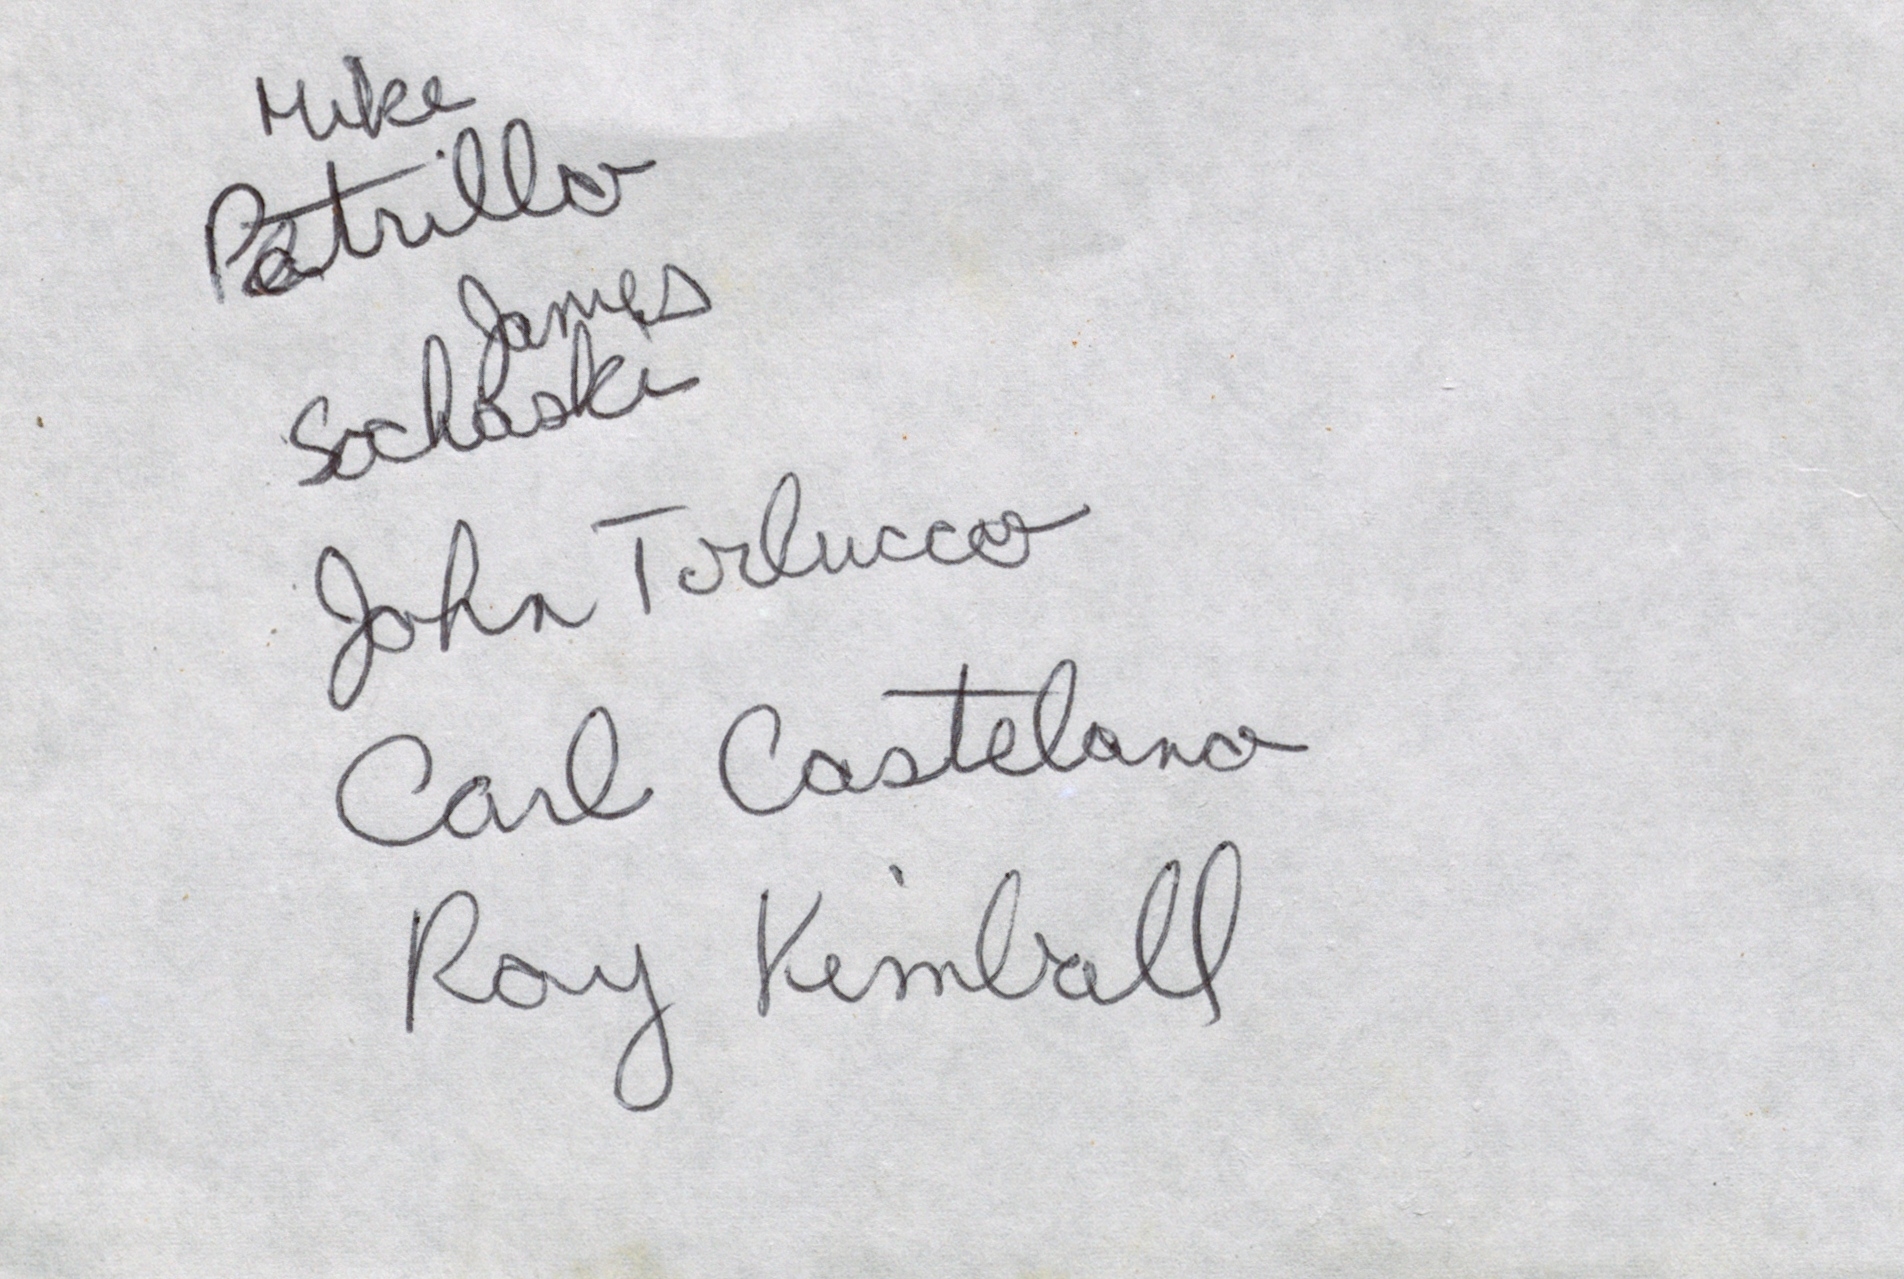 Mike
Patrillo
James
Sochaski
John Torlucco
Carl Castelano
Ray Kimball